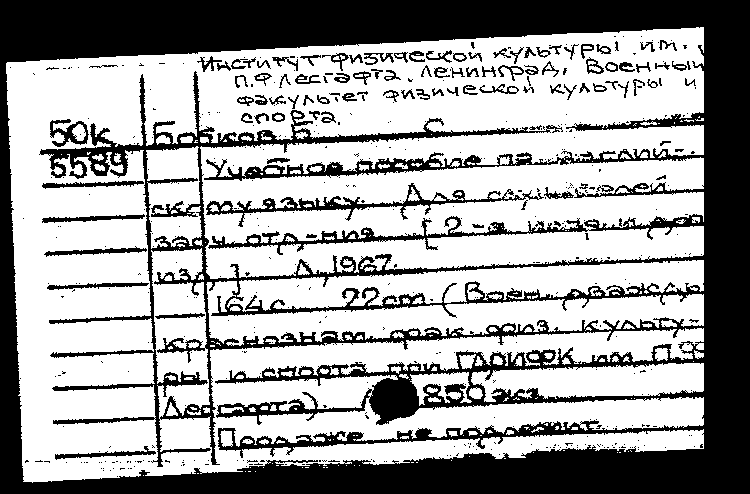 Институт физической культуры им.
П.Ф. Лесгафта. Ленинград. Военный
факультет физической культуры и
спорта.
50к Бобков, Б. С.
5589 Учебное пособие по англий-
скому языку. Для слушателей
заоч. отд-ния. [2-е испр. и доп.
изд.]. Л., 1967.
164 с. 22 cm. (Воен. дважды
краснознам. фак. физ. культу-
ры и спорта при ГДОИФК им. П.Ф.
Лесгафта) 850 экз.
Продаже не подлежит.